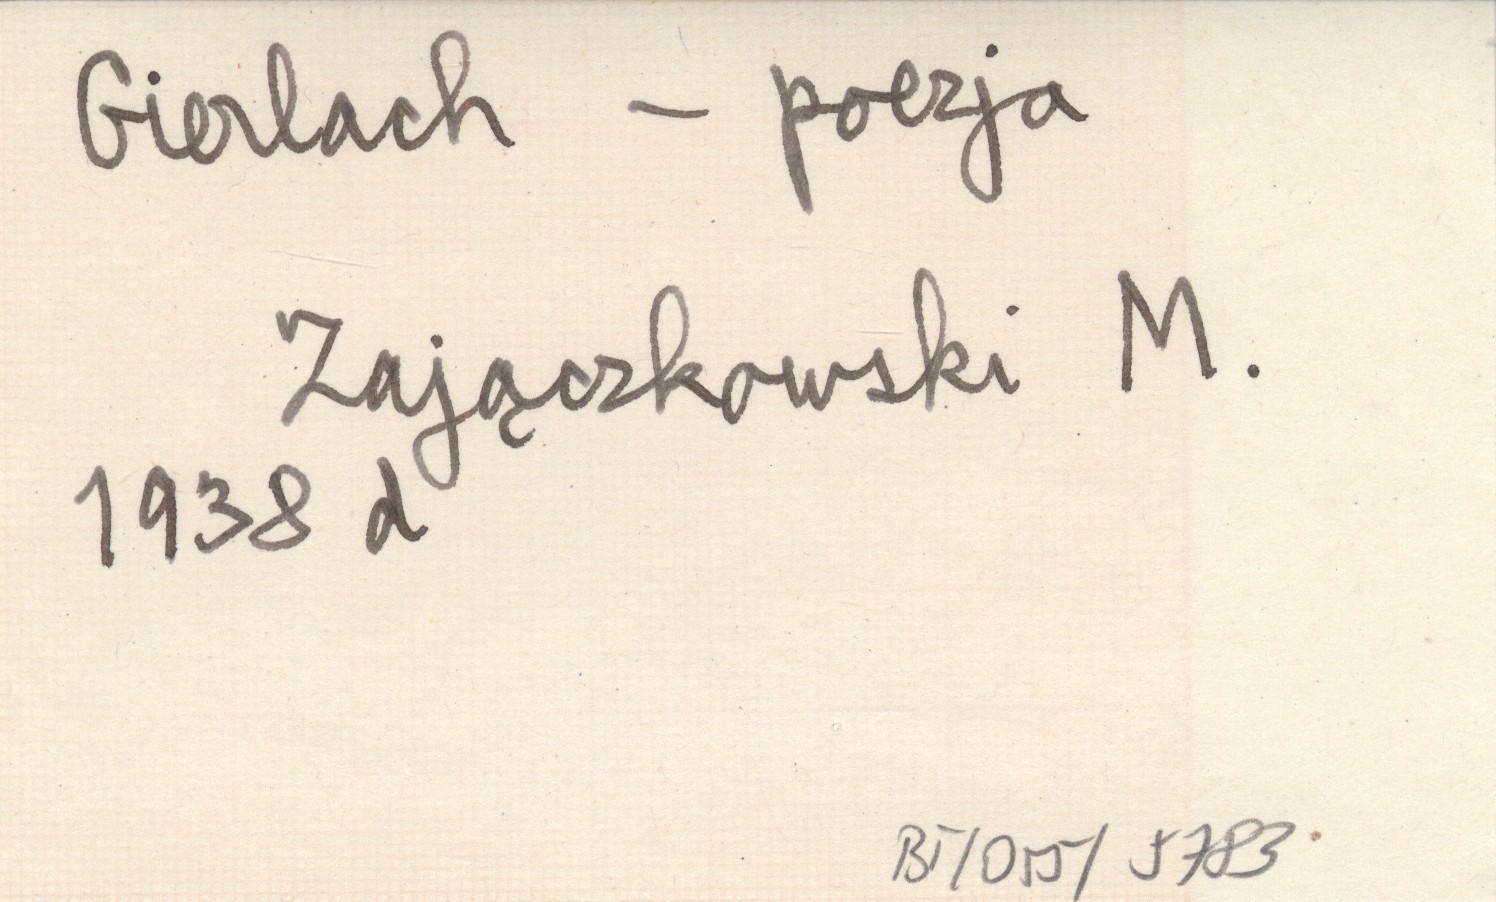 Gierlach – poezja
Zajączkowski M.
1938 d
BT/OW/ 5783